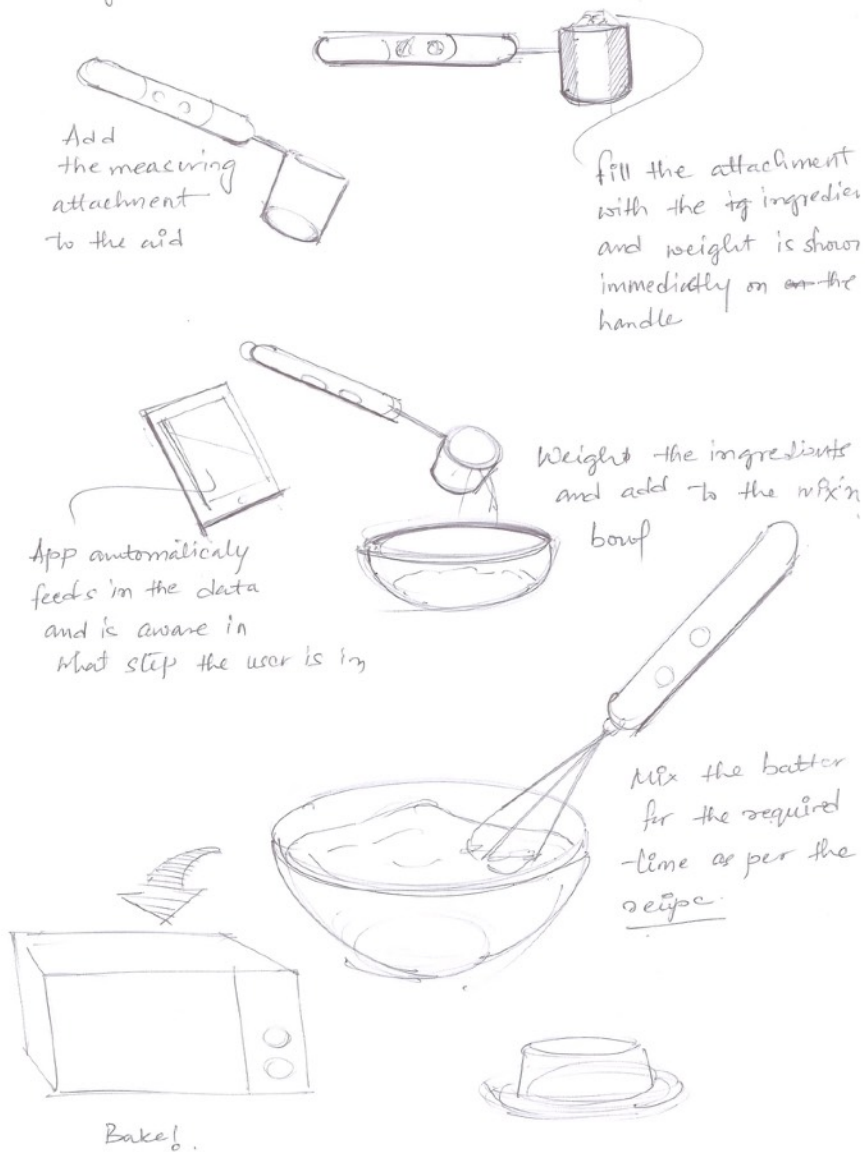 Add
the measuring
attachment
to the aid
fill the attachment
with the ig ingredien
and weight is shown
immediatly on on the
handle
Weight the ingredients
and add to the mix'n
bowl
App automaticaly
feeds in the data
and is aware in
what step the user is in
Mix the batter
for the required
time as per the
recipe.
Bake!